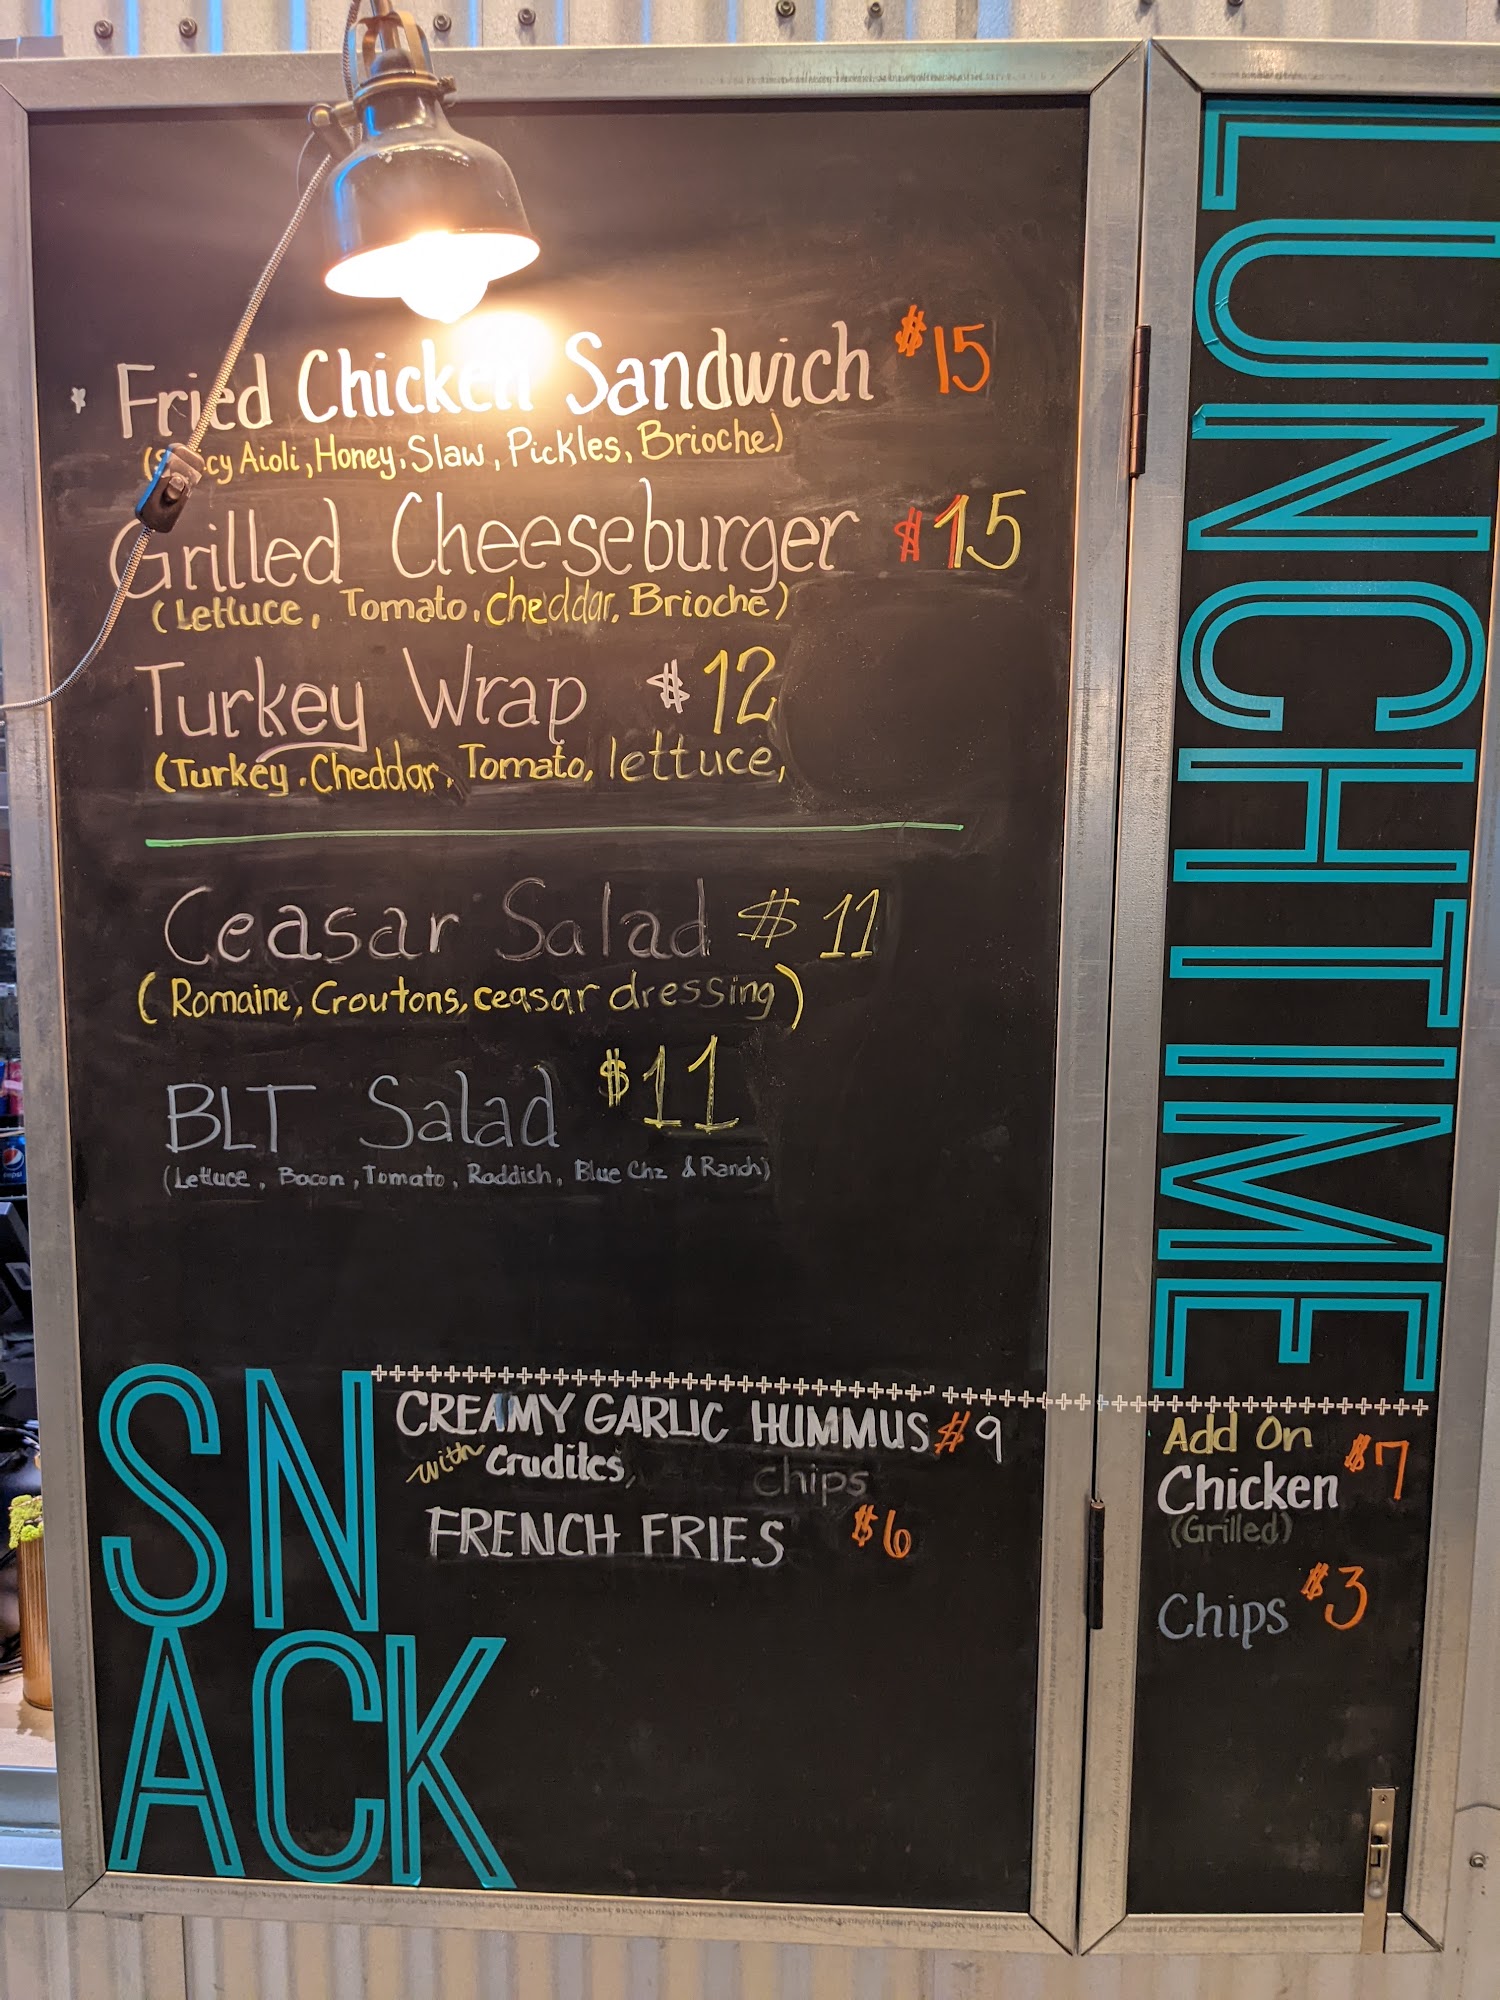 Fried Chicken Sandwich $15
(Spicy Aioli, Honey, Slaw, Pickles, Brioche)
Grilled Cheeseburger $15
(Lettuce, Tomato, cheddar, Brioche)
Turkey Wrap $12
(Turkey, Cheddar, Tomato, lettuce,
Ceasar Salad $11
(Romaine, Croutons, ceasar dressing)
BLT Salad $11
(Lettuce, Bacon, Tomato, Raddish, Blue Chz & Ranch)
LUNCHTIME
SN
ACK
CREAMY GARLIC HUMMUS $9
with Crudites, Chips
FRENCH FRIES $6
Add On
Chicken $7
(Grilled)
Chips $3
pepsi